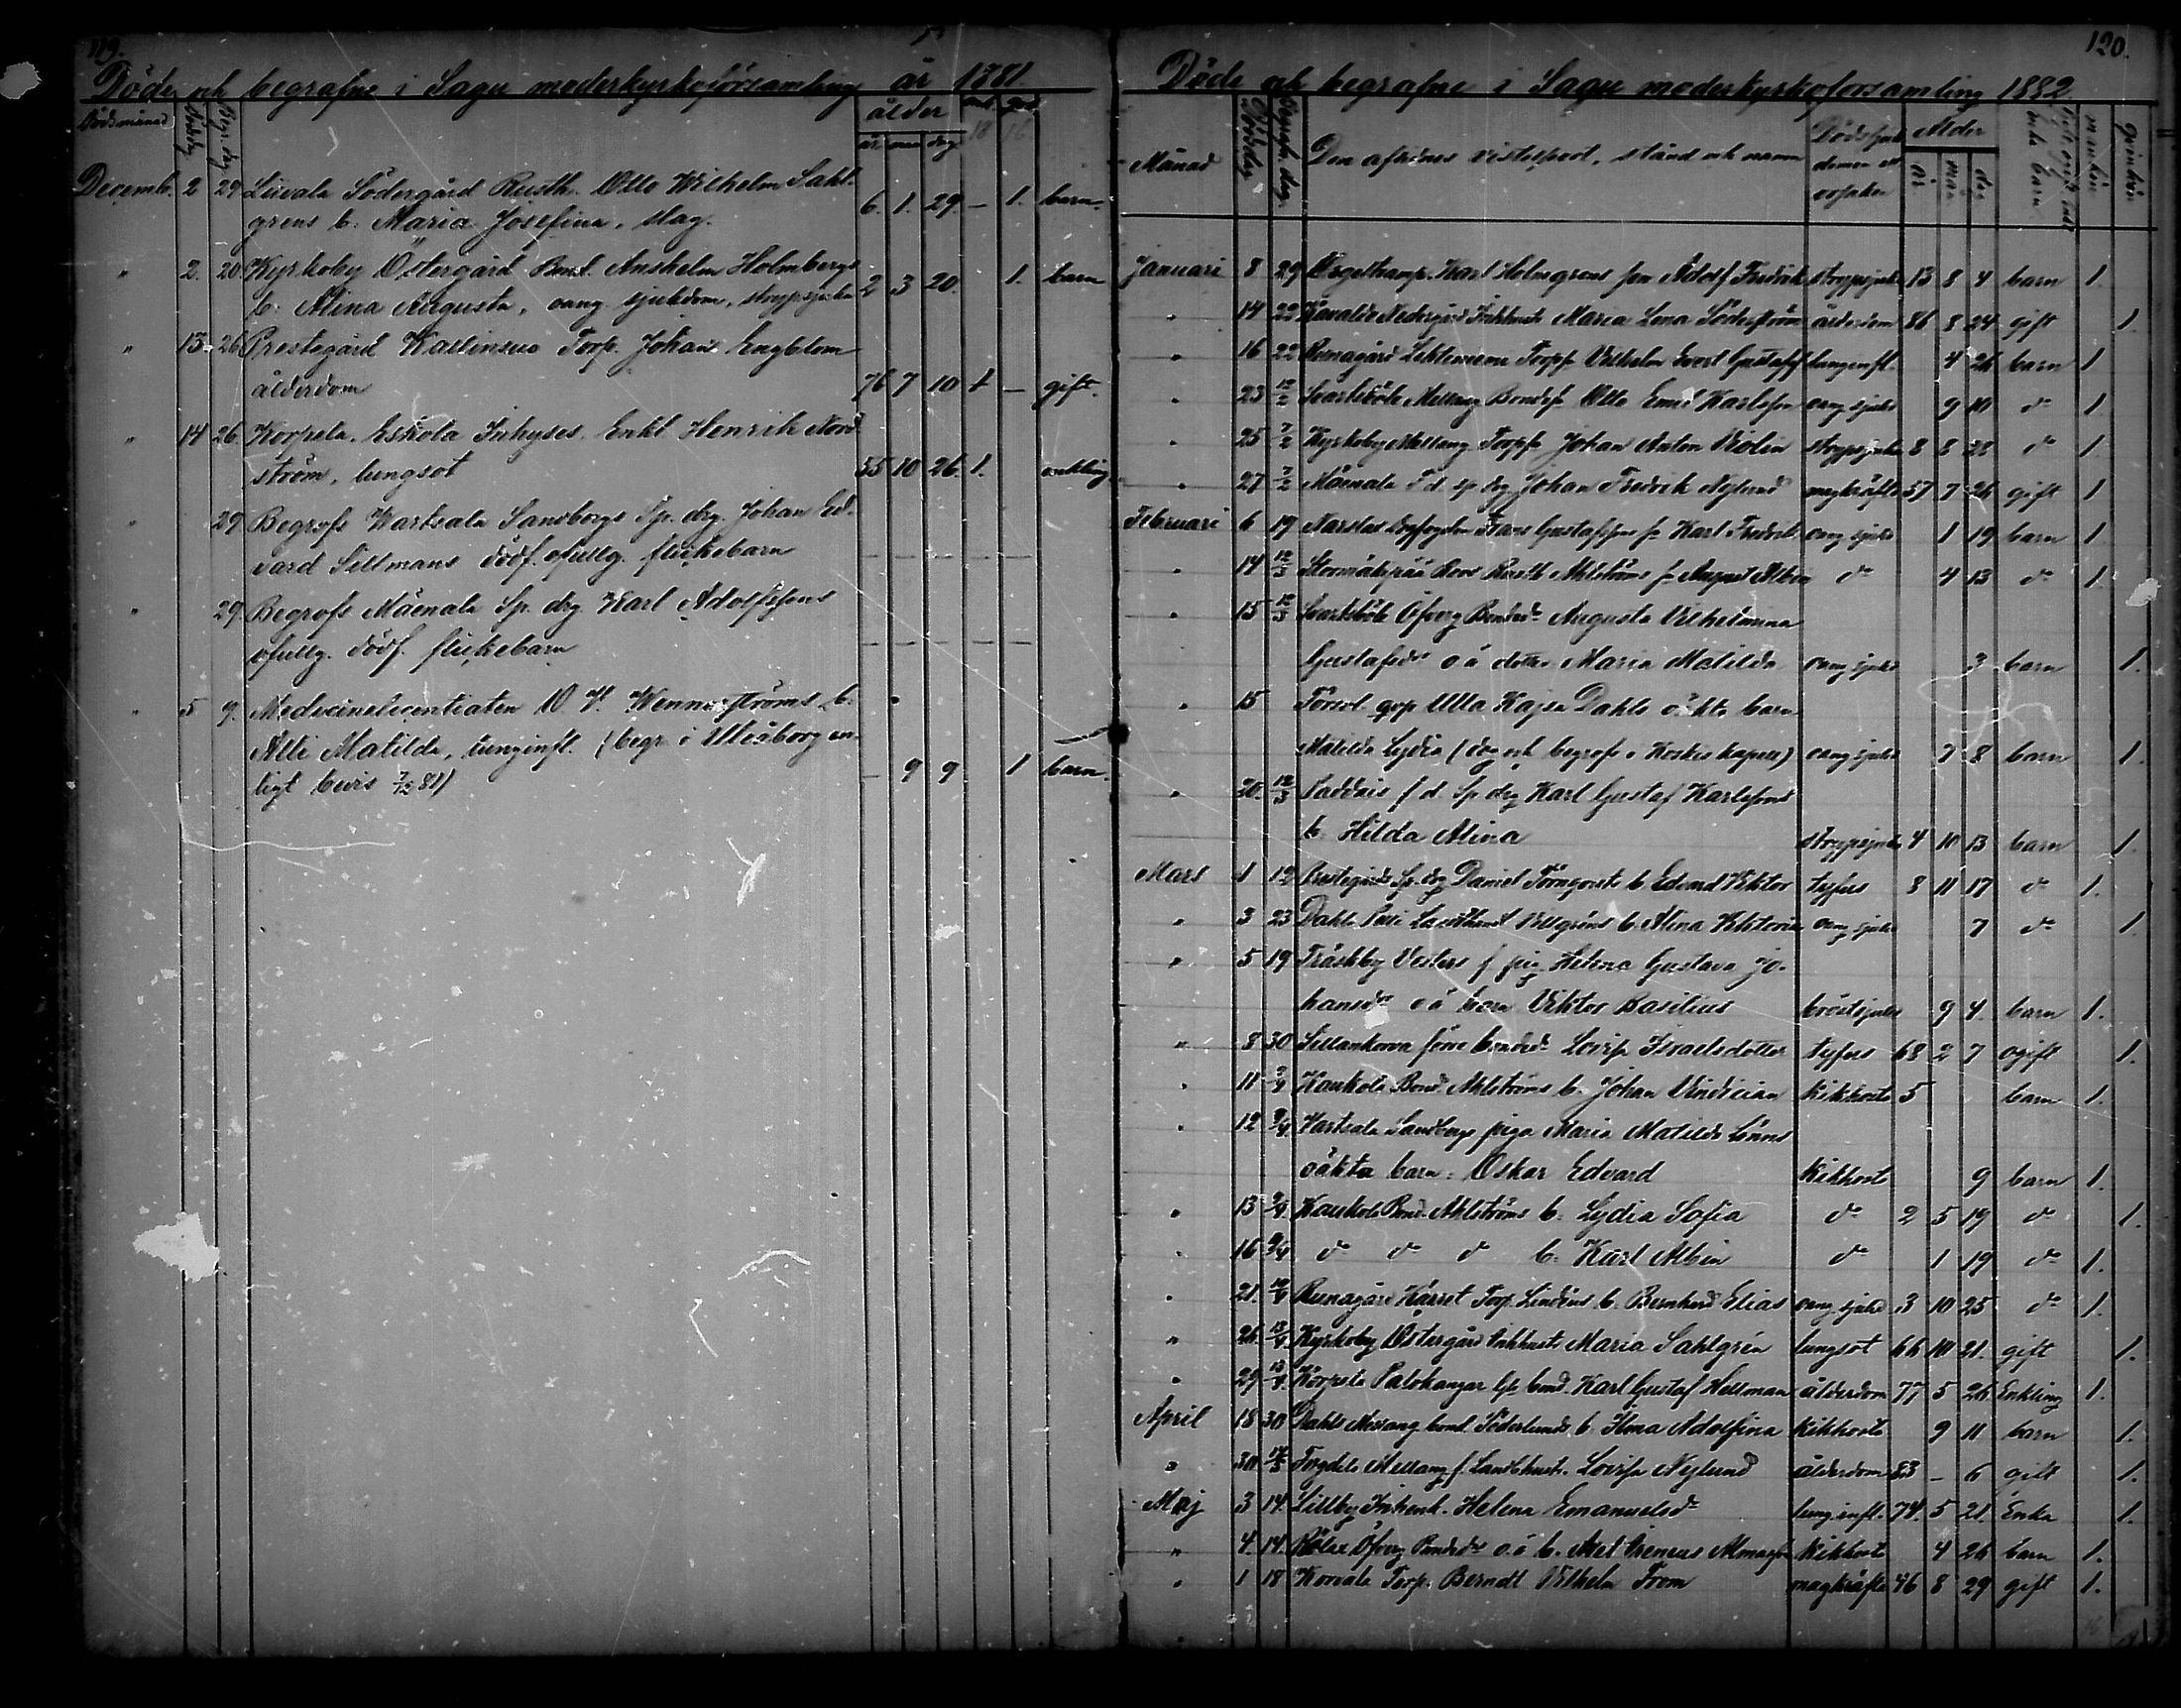 119.
Döde och begrafne i Sagu moderkyrkoförsamling år 1881
Dödsmånad Dödsdag Begr. dag ålder mk qvk
år mån dag 18 16
Decemb. 2 29 Liivala Södergård Rusth. Otto Wilhelm Sahl-
grens b. Maria Josefina, slag. 6. 1. 29. — 1. barn.
" 2. 20. Kyrkoby Östergård Bond. Anshelm Holmbergs
b. Alina Augusta, oang. sjukdom, strypsjuka 2 3 20. 1. barn
" 13. 26 Prestegård Kallinsuo Torp. Johan Engblom
ålderdom 76 7 10 1 — gift.
" 14 26. Korpela, Eskola Inhyses. Enkl. Henrik Nord-
ström, lungsot 55 10 26. 1. enkling
" 29 Begrofs Kartsala Sandbergs Sp. drg. Johan Ed-
vard Sillmans dödf. ofullg. flickebarn — — —
" 29. Begrofs Mäenala Sp. drg Karl Adolfssons
ofullg. dödf. flickebarn — — —
" 5 9. Medicinelicentiaten W. Wennerströms b.
Alli Matilda, lunginfl. (begr. i Uleåborg en-
ligt bevis 7/12 81) — 9 9 1 barn.
120.
Döde och begrafne i Sagu moderkyrkoförsamling 1882
Månad Dödsdag Begrafn. dag Den aflidnes vistelseort, stånd och namn Dödssjuk-
domen el. orsaken Ålder år mån dag mankön qvinkön
Januari 8 29 Orgeltramp. Karl Holmgrens son Adolf Fredrik strypsjuka 13 8 4 barn 1.
" 14 22 Nedergård Inhhust. Maria Lena Söderström ålderdom 86 8 24 gift 1.
" 16 22 Runagård Torps. Vilhelm Evert Gustafss. lunginfl. 4 26 barn 1
" 23 12/2 Svartsböle Mellang. Bondes. Otto Emil Karlsson oang. sjukd 9 10 do 1.
" 25 7/2 Kyrkoby Mellang. Torps. Johan Anton Violin strypsjuka 8 8 28 do 1.
" 27 7/2 Mäenala F.d. sp. drg Johan Fredrik Nylund magkräfta 57 7 26 gift 1
Februari 6 19 Skogfogden Frans Gustafssons s. Karl Fredrik oang. sjukd 1 19 barn 1
" 14 12/3 Rusth. Ahlströms s. August Albin do 4 13 do 1.
" 15 12/3 Svartsböle Öfverg. Bondedr Augusta Vilhelmina
Gustafsdr o ä dotter Maria Matilda oang. sjukd 3 barn 1.
" 15 Försvl. qvp Ulla Kajsa Dahls oäkta barn
Matilda Lydia (dog och begrofs i Koskis kapell) oang. sjukd 7 8 barn 1.
" 20. 12/3 Paddais f d Sp drg Karl Gustaf Karlssons
b. Hilda Alina strypsjuka 4 10 13 barn 1.
Mars 1 12 Prestegårds Sp. drg Daniel Törnqvists b Edvard Viktor tyfus 8 11 17 do 1.
" 3 23 Dahls b. Alina Viktoria oang. sjukd 7 do 1.
" 5 19 Träskby Vesters f. pig. Helena Gustava Jo-
hansdr o ä barn Viktor Basilius bröstsjukd 9 4. barn 1.
" 8 30 Sillankorva förre bondedr. Lovisa Israelsdotter tyfus 68 2 7 ogift 1.
" 11 2/4 Kankola Bond. Ahlströms b. Johan Vindician kikhosta 5 barn 1.
" 12 9/4 Kartsala Sandbergs piga Maria Matilda Lönns
oäkta barn: Oskar Edvard kikhosta 9 barn 1.
" 13 9/4 Kankola Bond. Ahlströms b. Lydia Sofia do 2 5 19 do 1.
" 16 9/4 do do do b. Karl Albin do 1 19 do 1.
" 21. 10/4 Runagård Kärret Torp. Lindéns b. Bernhard Elias oang. sjukd 3 10 25 do 1.
" 26 13/4 Kyrkoby Östergård Inhhust. Maria Sahlgrén lungsot 66 10 21. gift 1.
" 29 13/4 Korpela Palokangar bond. Karl Gustaf Hellman ålderdom 77 5 26 Enkling 1.
April 18 30 Dahls Mellang. bond. Söderlunds b. Ilma Adolfina kikhosta 9 11 barn 1.
" 30 14/5 Mellang. f. Landbhust. Lovisa Nylund ålderdom 83 — 6 gift 1.
Maj 3 14. Lillby Inhenk. Helena Emanuelsdr lunginfl. 74. 5 21. Enka 1.
" 4. 14. Öfverg. Bondedr o. ä b. Axel Ireneus kikhosta 4 26 barn 1.
" 1 18 Korvala Torp. Berndt Vilhelm From magkräfta 46 8 29 gift 1.